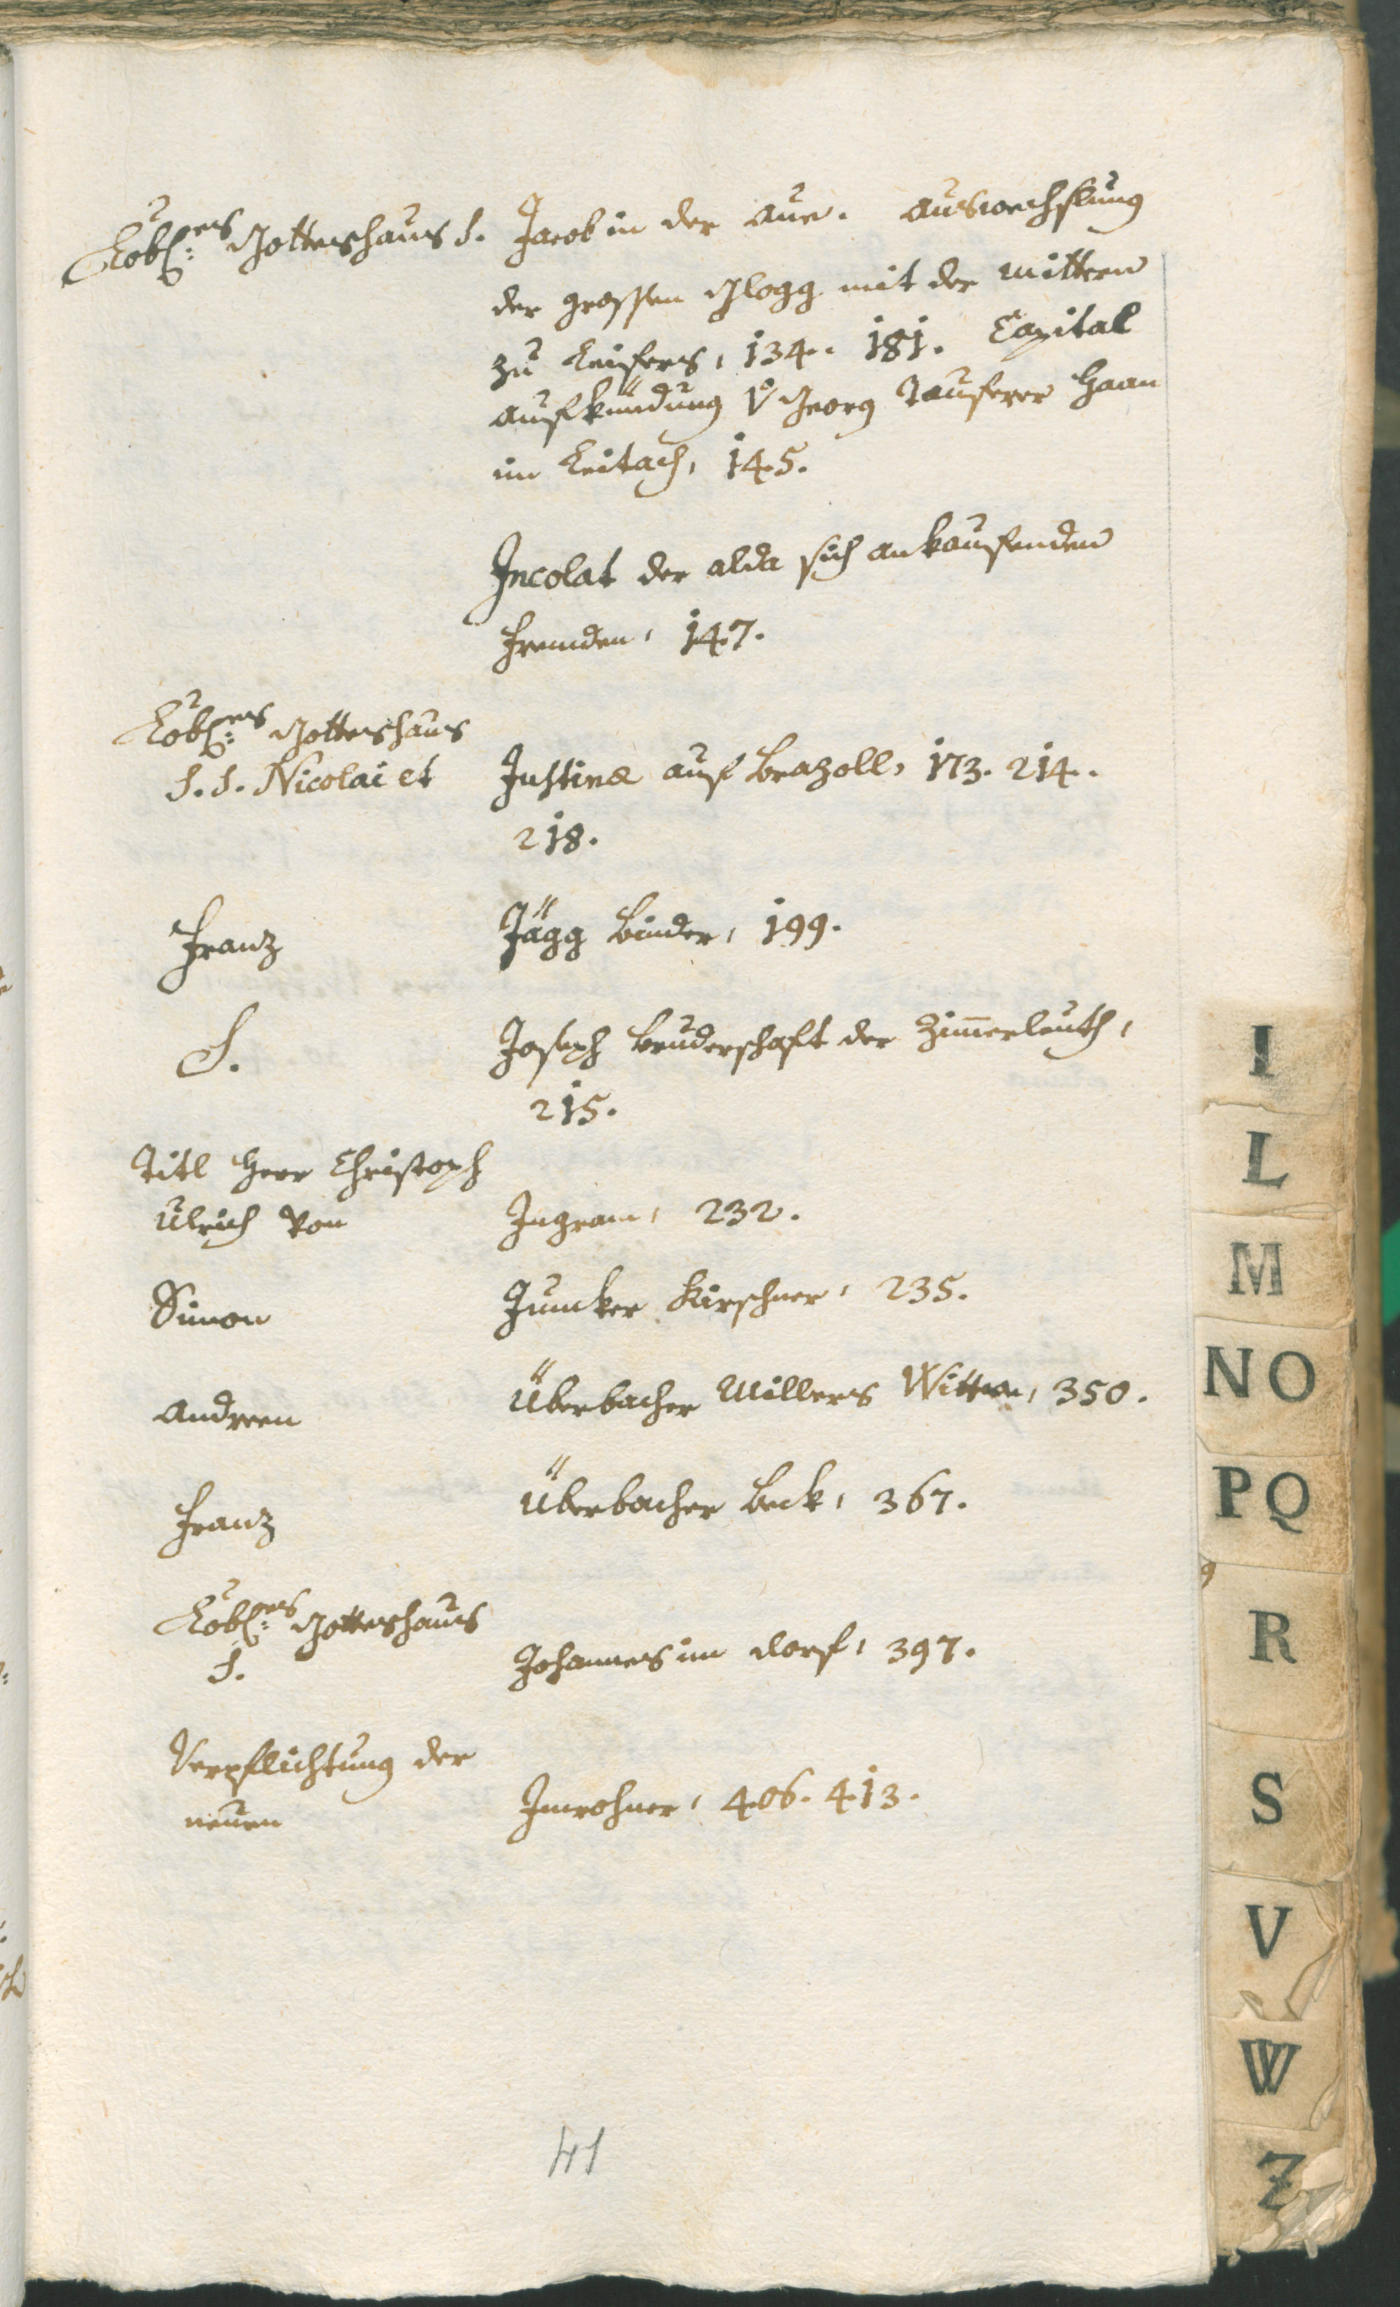 Löbl:es Gottershaus S. Jacob in der Aue. Auswechslung
der grossen Glogg mit der mittern
zu Leifers, 134. 181. Capital
aufkündung Georg Tauferer Haan
im Leitach, 145.
Incolat der alda sich ankaufenden
fremden, 147.
Löbl:es Gottershaus
S. S. Nicolai et Justinæ auf Prazoll, 173. 214.
218.
Franz Jägg Binder, 199.
S. Joseph Bruderschaft der Zimerleuth,
215.
Titl Herr Christoph
Ulrich von Ingram, 232.
Simon Juncker Kirschner, 235.
Andreen Überbacher Millers Wittwe, 350.
Franz Überbacher Beck, 367.
Löbl:es Gottershaus
S. Johannes im Dorf, 397.
Verpflichtung der
neuen Inwohner, 406. 413.
41
I
L
M
NO
PQ
R
S
V
W
Z